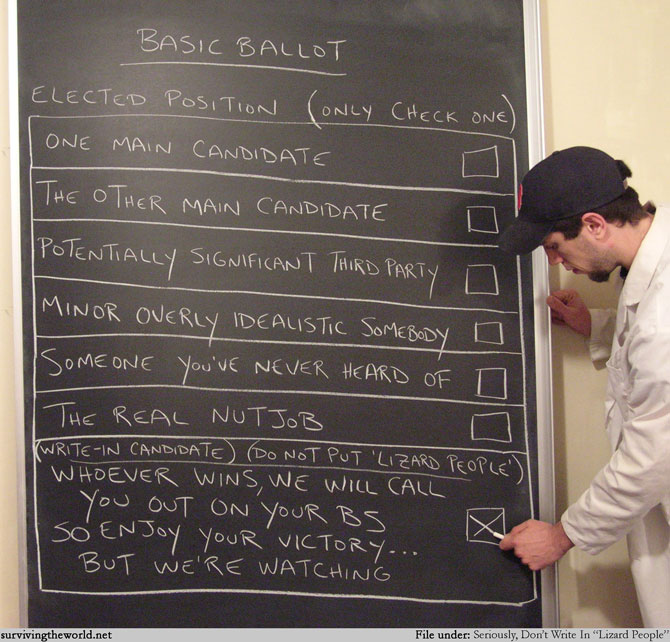 BASIC BALLOT
ELECTED POSITION (ONLY CHECK ONE)
ONE MAIN CANDIDATE
THE OTHER MAIN CANDIDATE
POTENTIALLY SIGNIFICANT THIRD PARTY
MINOR OVERLY IDEALISTIC SOMEBODY
SOMEONE YOU'VE NEVER HEARD OF
THE REAL NUTJOB
(WRITE-IN CANDIDATE) (DO NOT PUT 'LIZARD PEOPLE')
WHOEVER WINS, WE WILL CALL
YOU OUT ON YOUR BS
SO ENJOY YOUR VICTORY...
BUT WE'RE WATCHING
survivingtheworld.net
File under: Seriously, Don't Write In "Lizard People"